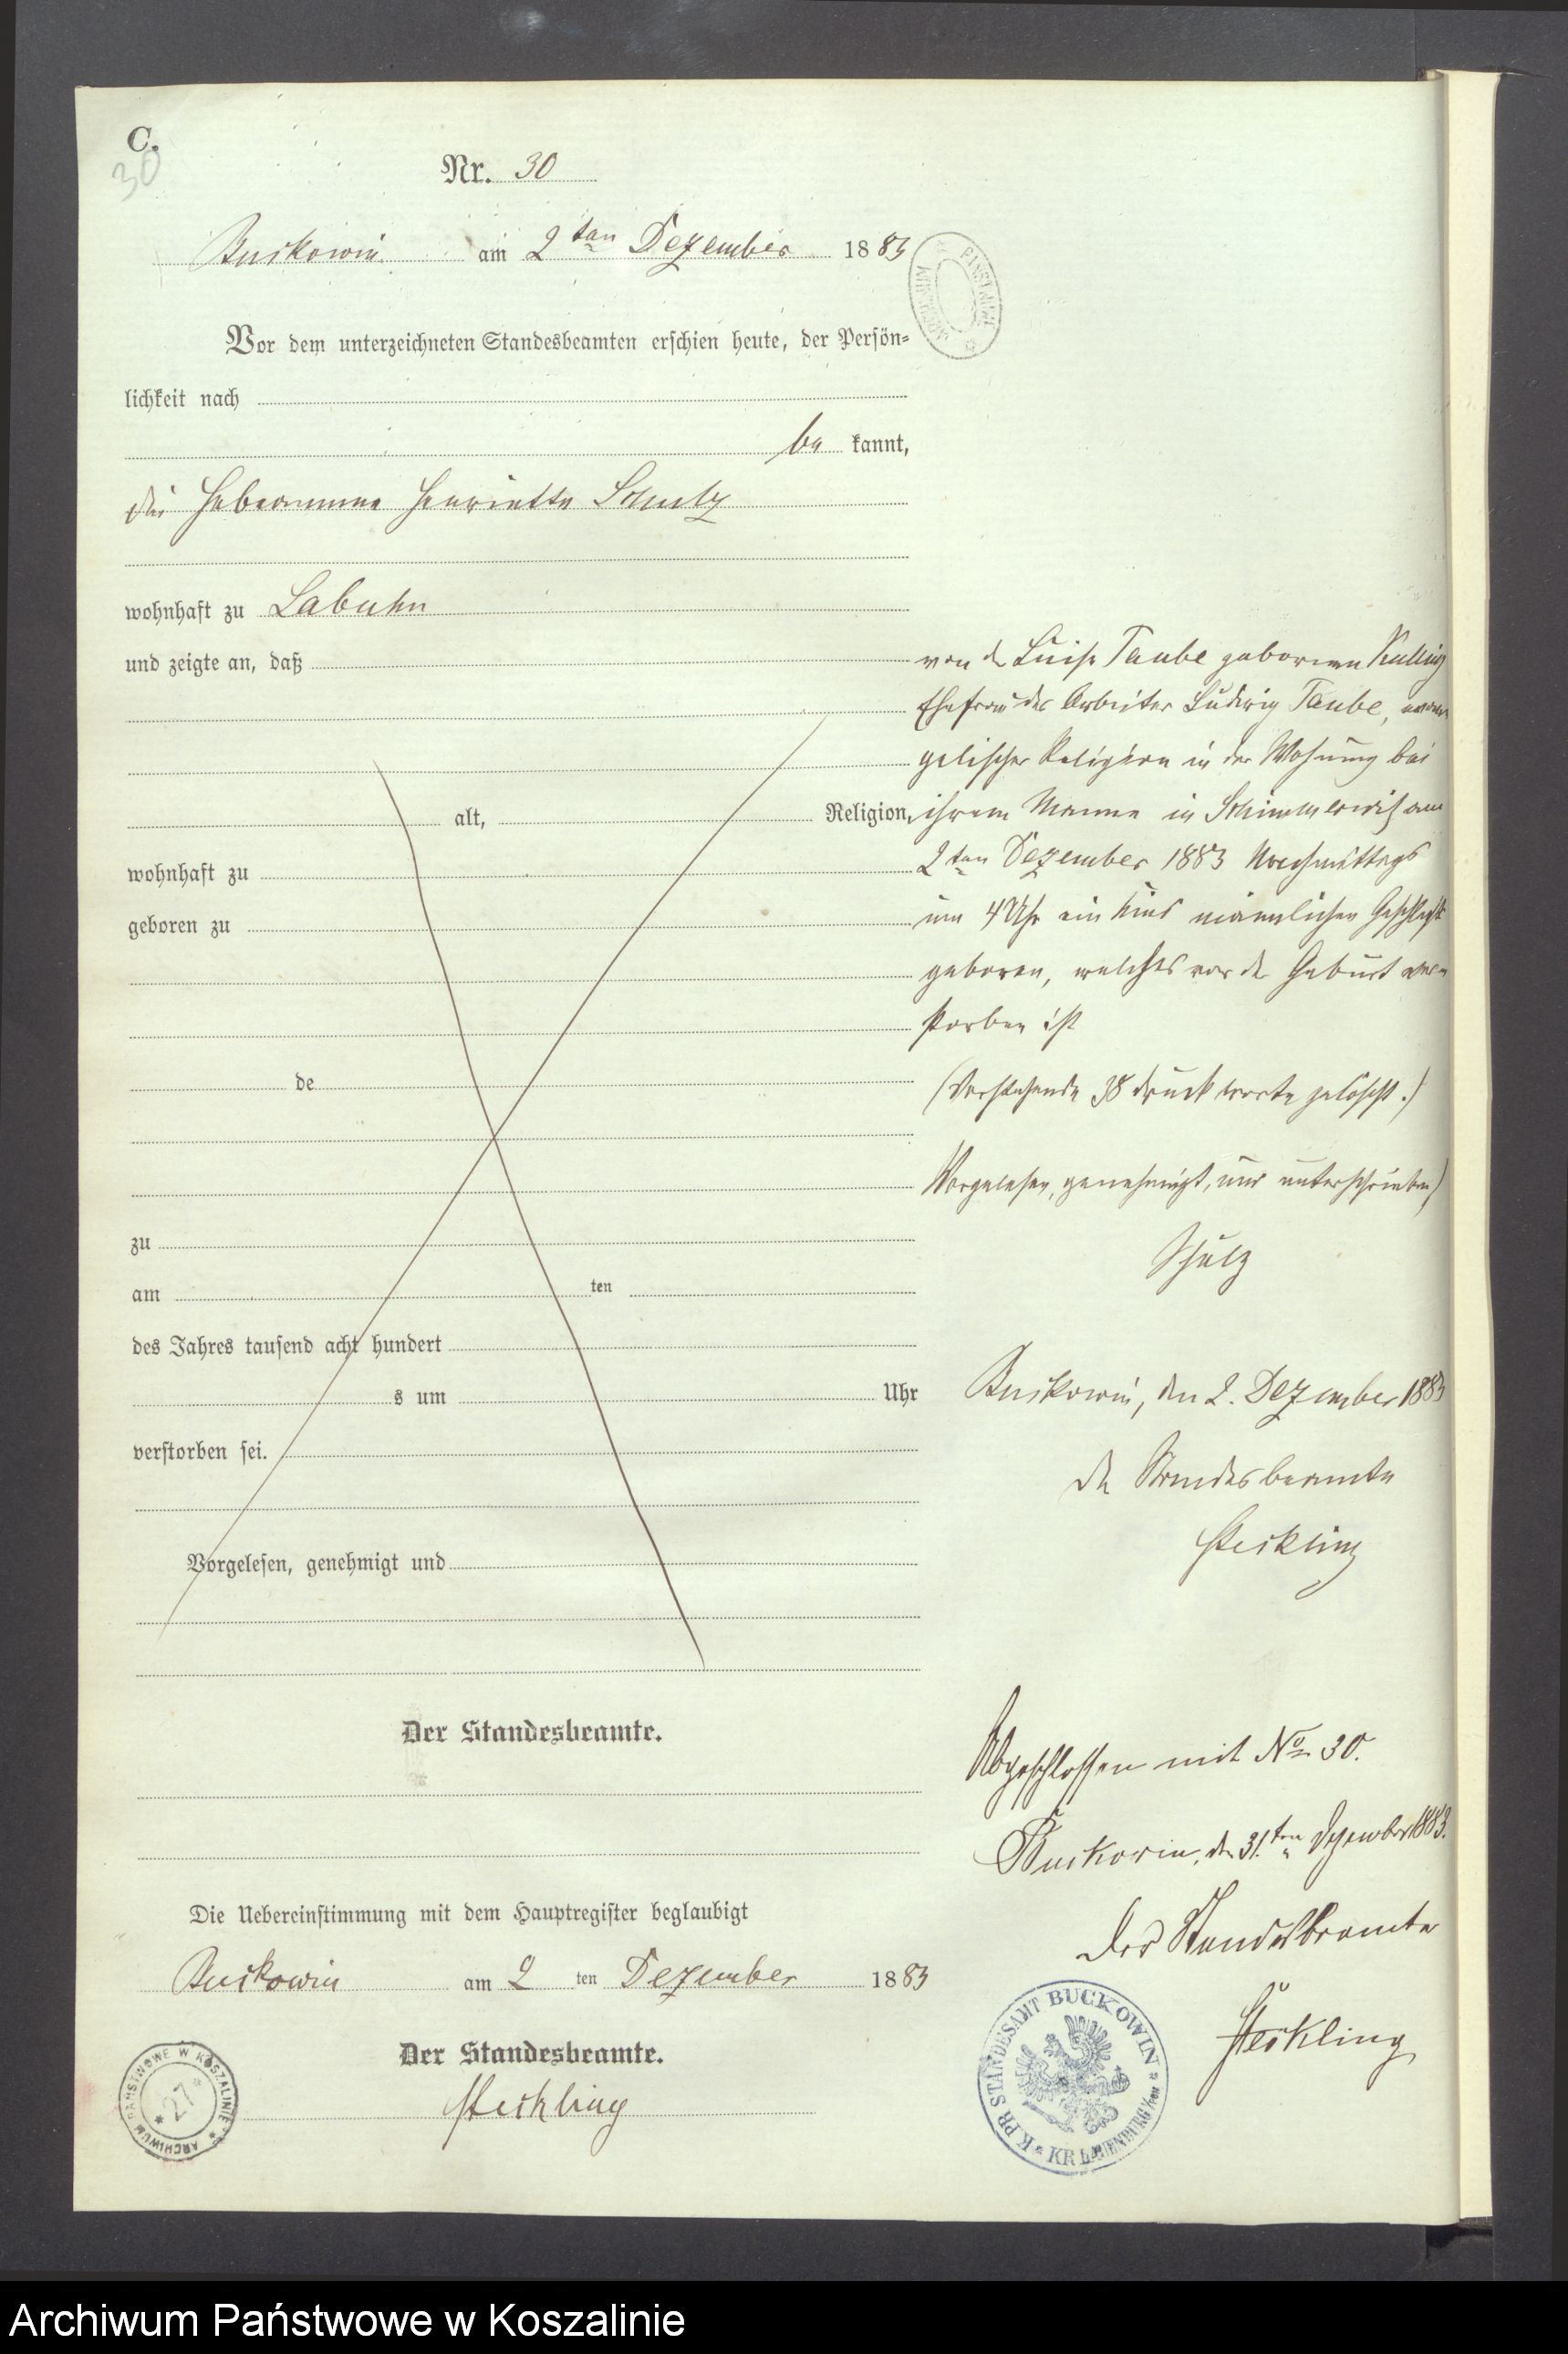 C.
30
Nr. 30
Buckowin am 2ten Dezember 1883
Vor dem unterzeichneten Standesbeamten erschien heute, der Persön=
lichkeit nach
be kannt,
die Hebeamme Henriette Schulz
wohnhaft zu Labuhn
und zeigte an, daß
alt, Religion,
wohnhaft zu
geboren zu
de
zu
am ten
des Jahres tausend acht hundert
s um Uhr
verstorben sei.
Vorgelesen, genehmigt und
Der Standesbeamte.
Die Uebereinstimmung mit dem Hauptregister beglaubigt
Buckowin am 2 ten Dezember 1883
Der Standesbeamte.
Steckling
von der Luise Taube geborenen
Ehefrau des Arbeiter Ludwig Taube, evan
gelischer Religion in der Wohnung bei
ihrem Manne in Schimmerwitz am
2ten Dezember 1883 Nachmittags
um 4 Uhr ein Kind männlichen Geschlechts
geboren, welches vor der Geburt ver
storben ist
(Vorstehende 38 Druckworte gelöscht.)
Vorgelesen, genehmigt, und unterschrieben)
Schulz
Buckowin, den 2. Dezember 1883
der Standesbeamte
Steckling
Abgeschlossen mit No 30.
Buckowin, den 31.ten Dezember 1883.
Der Standesbeamte
Steckling
K. PR. STANDESAMT BUCKOWIN
* KR. LAUENBURG i/Pom *
ARCHIWUM PAŃSTWOWE W KOSZALINIE
* 27 *
Archiwum Państwowe w Koszalinie